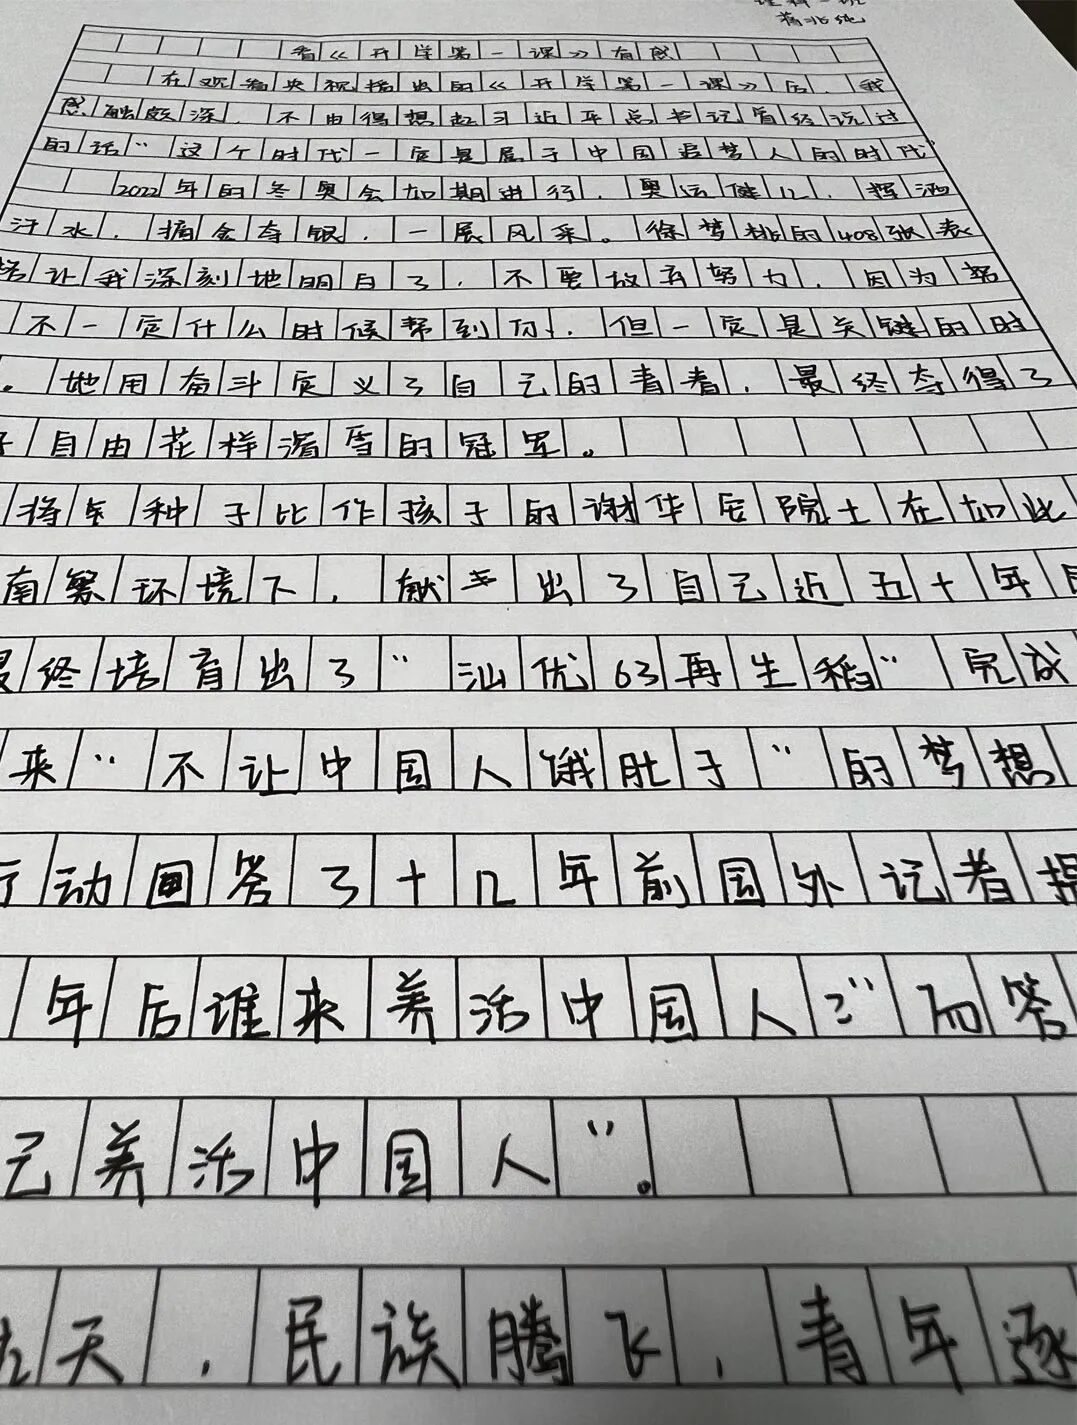 看《开学第一课》有感
在观看央视播出的《开学第一课》后，我
感触颇深，不由得想起习近平总书记曾经说过
的话"这个时代一定是属于中国追梦人的时代"
2022年的冬奥会如期进行，奥运健儿，挥洒
汗水，摘金夺银，一展风采。徐梦桃的408张表
格让我深刻地明白了，不要放弃努力，因为努
不一定什么时候帮到你，但一定是关键的时
。她用奋斗定义了自己的青春，最终夺得了
子自由花样滑雪的冠军。
将每种子比作孩子的谢华安院士在如此
南繁环境下，献出了自己近五十年
最终培育出了"汕优63再生稻"完成
来"不让中国人饿肚子"的梦想
行动回答了十几年前国外记者提
年后谁来养活中国人？"而答
己养活中国人"。
九天，民族腾飞，青年逐